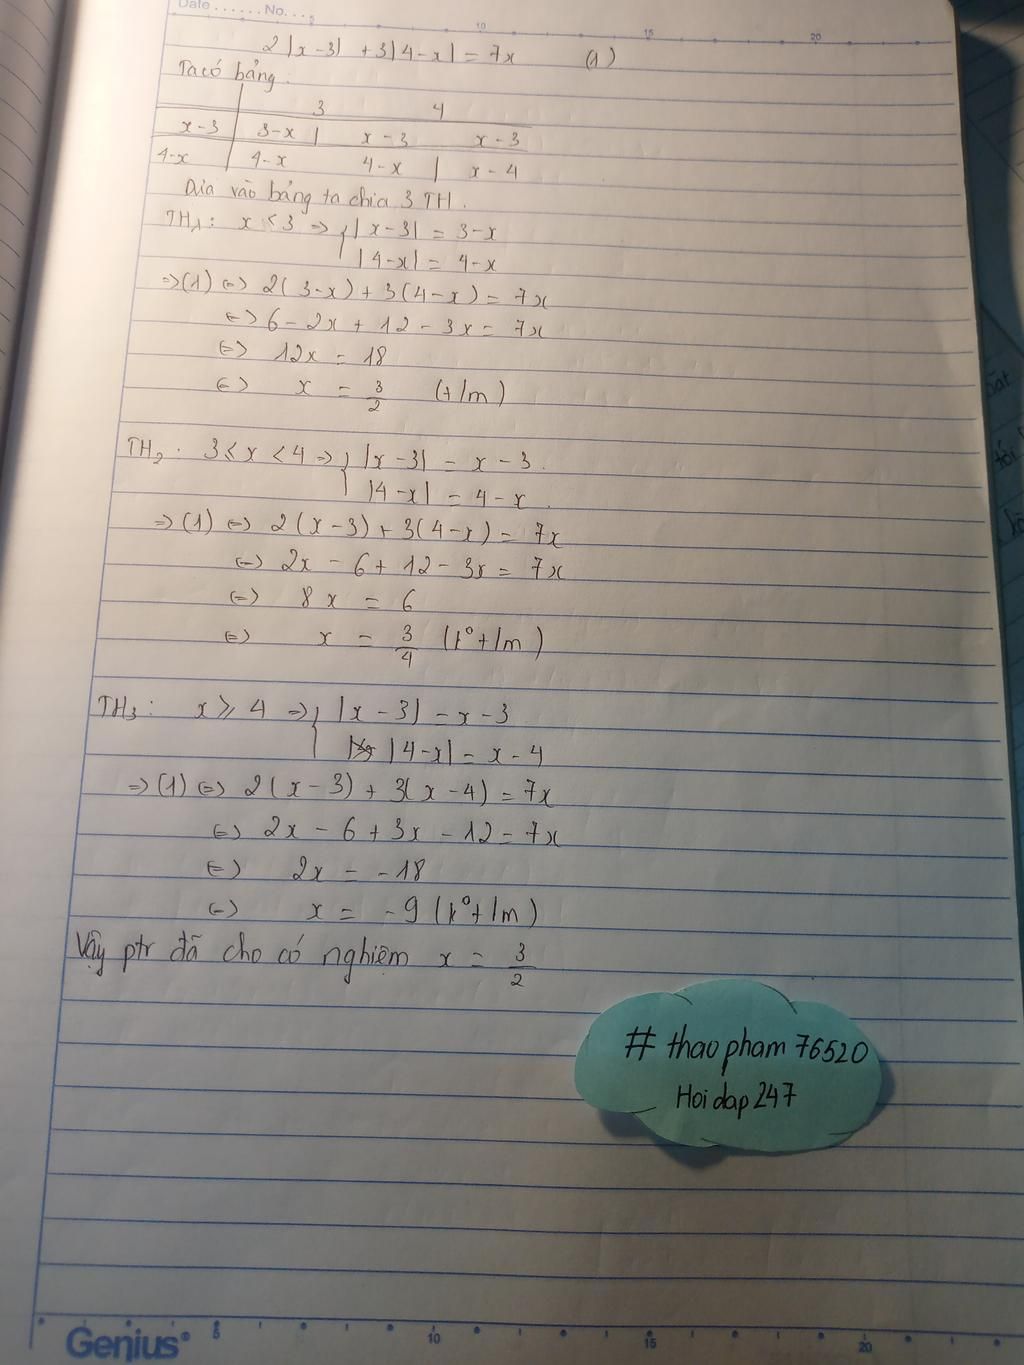 Date ...... No. ...
5 10 15 20
2|x-3| + 3|4-x| = 7x (1)
Ta có bảng:
3 4
x-3 3-x | x-3 x-3
4-x 4-x 4-x | x-4
Dựa vào bảng ta chia 3 TH.
TH₁: x < 3 => { |x-3| = 3-x
|4-x| = 4-x
=> (1) <=> 2(3-x) + 3(4-x) = 7x
<=> 6 - 2x + 12 - 3x = 7x
<=> 12x = 18
<=> x = 3/2 (t/m)
TH₂: 3 ≤ x < 4 => { |x-3| = x-3.
|4-x| = 4-x.
=> (1) <=> 2(x-3) + 3(4-x) = 7x
<=> 2x - 6 + 12 - 3x = 7x
<=> 8x = 6
<=> x = 3/4 (k° t/m)
TH₃: x ≥ 4 => { |x-3| = x-3
|4-x| = x-4
=> (1) <=> 2(x-3) + 3(x-4) = 7x
<=> 2x - 6 + 3x - 12 = 7x
<=> 2x = -18
<=> x = -9 (k° t/m)
Vậy ptr đã cho có nghiệm x = 3/2
# thaopham76520
Hoidap247
Genius® 5 10 15 20